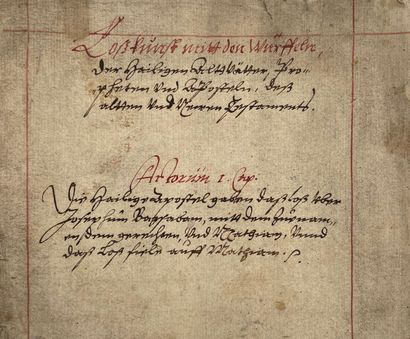 Loßkunst mitt den Würffeln,
der Heiligen Altvätter, Pro-
pheten Vnd Aposteln, deß
altten Vnd Neuen Testaments.
Actorum 1. Cap.
Die Heilige Apostel gaben daß loß vber
Joseph zum Barsaban, mitt dem Zunam,
gerechten, Vnd Mathiam, Vnnd
daß Loß fiele auff Mathiam.